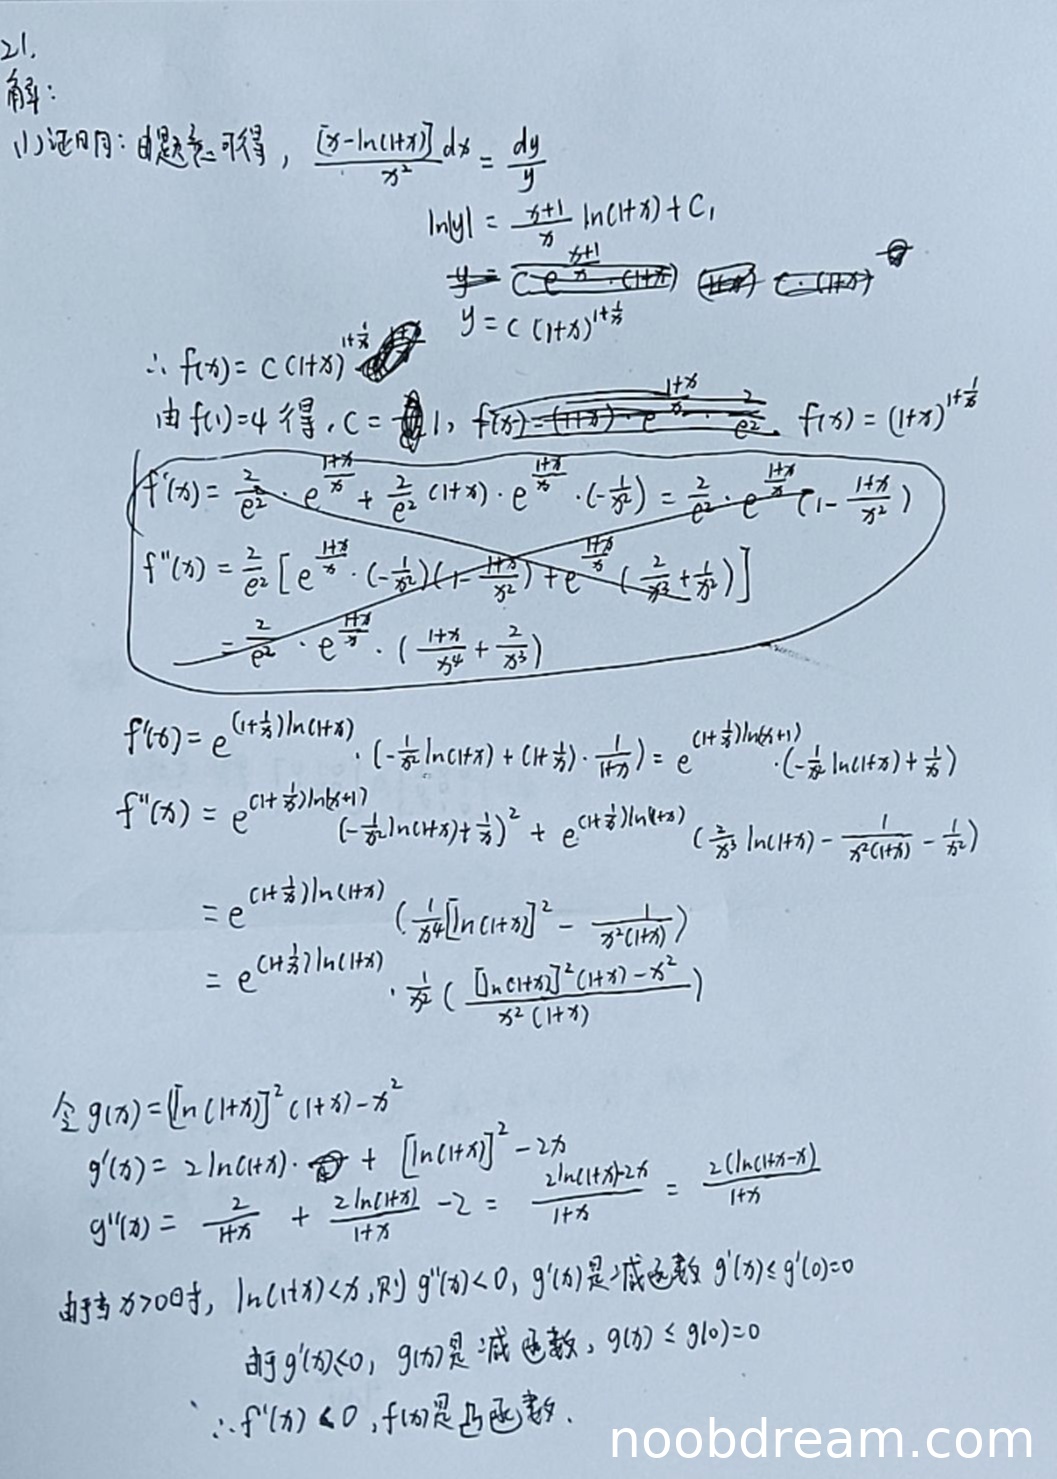 21.
解:
(1)证明: 由题意可得, \frac{[x-\ln(1+x)]}{x^2}dx = \frac{dy}{y}
\ln|y| = \frac{x+1}{x}\ln(1+x)+C_1
y = C(1+x)^{1+\frac{1}{x}}
∴ f(x) = C(1+x)^{1+\frac{1}{x}}
由f(1)=4得, C=1, f(x)=(1+x)^{1+\frac{1}{x}}
f'(x) = \frac{2}{e^2}·e^{\frac{1+x}{x}} + \frac{2}{e^2}(1+x)·e^{\frac{1+x}{x}}·(-\frac{1}{x^2}) = \frac{2}{e^2}·e^{\frac{1+x}{x}}(1-\frac{1+x}{x^2})
f''(x) = \frac{2}{e^2}[e^{\frac{1+x}{x}}·(-\frac{1}{x^2})(1-\frac{1+x}{x^2})+e^{\frac{1+x}{x}}(\frac{2}{x^3}+\frac{1}{x^2})]
= \frac{2}{e^2}·e^{\frac{1+x}{x}}·(\frac{1+x}{x^4}+\frac{2}{x^3})
f'(x) = e^{(1+\frac{1}{x})\ln(1+x)}·(-\frac{1}{x^2}\ln(1+x)+(1+\frac{1}{x})·\frac{1}{1+x}) = e^{(1+\frac{1}{x})\ln(x+1)}·(-\frac{1}{x^2}\ln(1+x)+\frac{1}{x})
f''(x) = e^{(1+\frac{1}{x})\ln(x+1)}(-\frac{1}{x^2}\ln(1+x)+\frac{1}{x})^2 + e^{(1+\frac{1}{x})\ln(1+x)}(\frac{2}{x^3}\ln(1+x)-\frac{1}{x^2(1+x)}-\frac{1}{x^2})
= e^{(1+\frac{1}{x})\ln(1+x)}(\frac{1}{x^4}[\ln(1+x)]^2-\frac{1}{x^2(1+x)})
= e^{(1+\frac{1}{x})\ln(1+x)}·\frac{1}{x^2}(\frac{[\ln(1+x)]^2(1+x)-x^2}{x^2(1+x)})
令g(x)=[\ln(1+x)]^2(1+x)-x^2
g'(x) = 2\ln(1+x)· + [\ln(1+x)]^2-2x
g''(x) = \frac{2}{1+x} + \frac{2\ln(1+x)}{1+x} -2 = \frac{2\ln(1+x)-2x}{1+x} = \frac{2(\ln(1+x-x)}{1+x}
由于当x>0时, \ln(1+x)<x, 则g''(x)<0, g'(x)是减函数 g'(x)≤g'(0)=0
由于g'(x)≤0, g(x)是减函数, g(x)≤g(0)=0
∴f''(x)<0, f(x)是凸函数.
noobdream.com